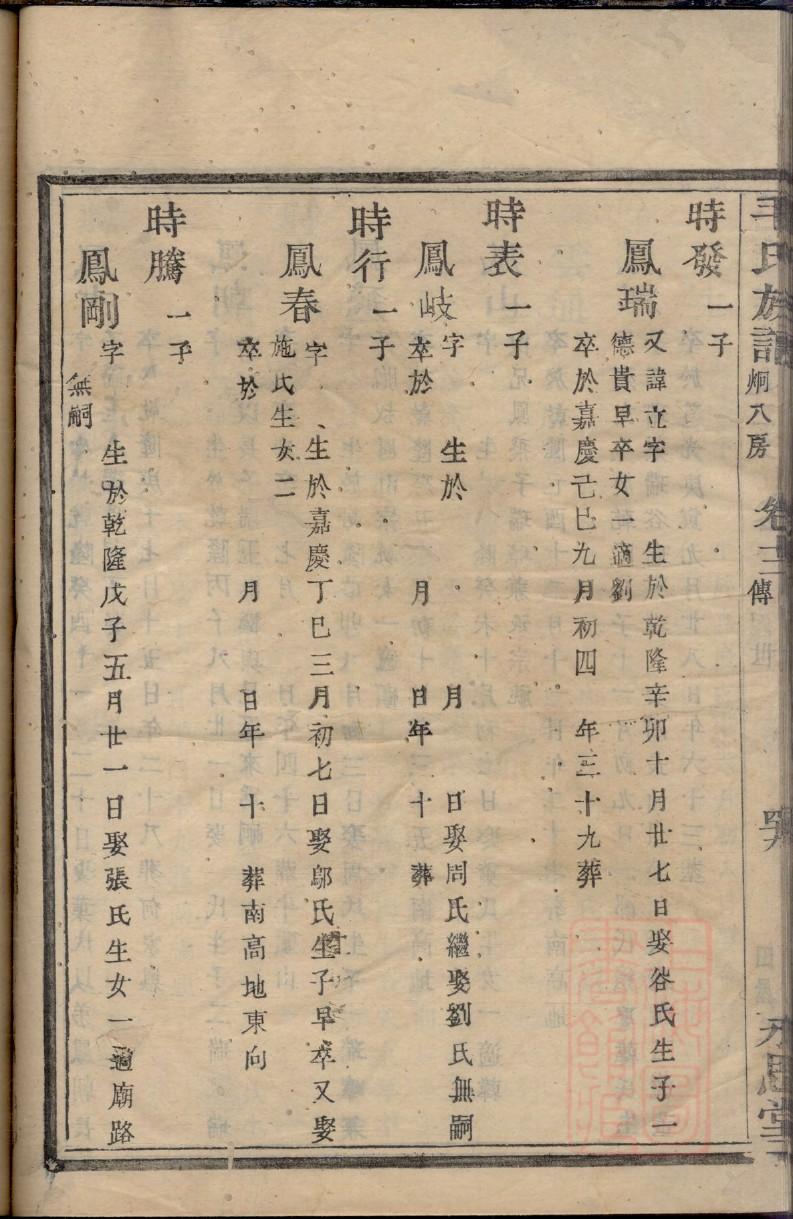 毛氏族譜 炯八房 卷十三 傳 永思堂
時發 一子
鳳瑞 又諱立字瑞谷 生於乾隆辛卯十月廿七日娶谷氏生子一
德貴早卒女 適劉
卒於嘉慶己巳九月初四 年三十九葬
時表 一子
鳳岐 字 生於 月 日娶周氏繼娶劉氏無嗣
卒於 月 日年 十 葬
時行 一子
鳳春 字 生於嘉慶丁巳三月初七日娶鄔氏生子早卒又娶
施氏生女二
卒於 月 日年 十 葬南高地東向
時騰 一子
鳳剛 字 生於乾隆戊子五月廿一日娶張氏生女一適廟路
無嗣